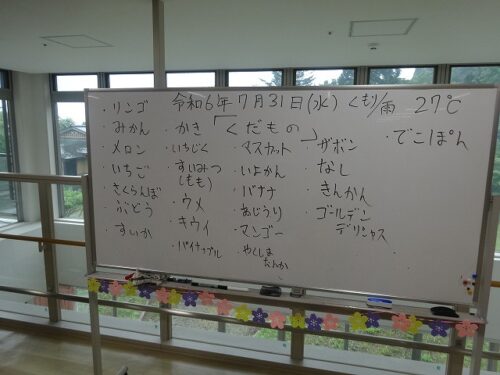 令和6年7月31日(水) くもり/雨 27℃
「くだもの」
・リンゴ
・みかん
・メロン
・いちご
・さくらんぼ
・ぶどう
・すいか
・かき
・いちじく
・すいみつ
(もも)
・ウメ
・キウイ
・パイナップル
・マスカット
・いよかん
・バナナ
・あじうり
・マンゴー
・やくしま
たんかん
・ザボン
・なし
・きんかん
・ゴールデン
デリシャス
・でこぽん